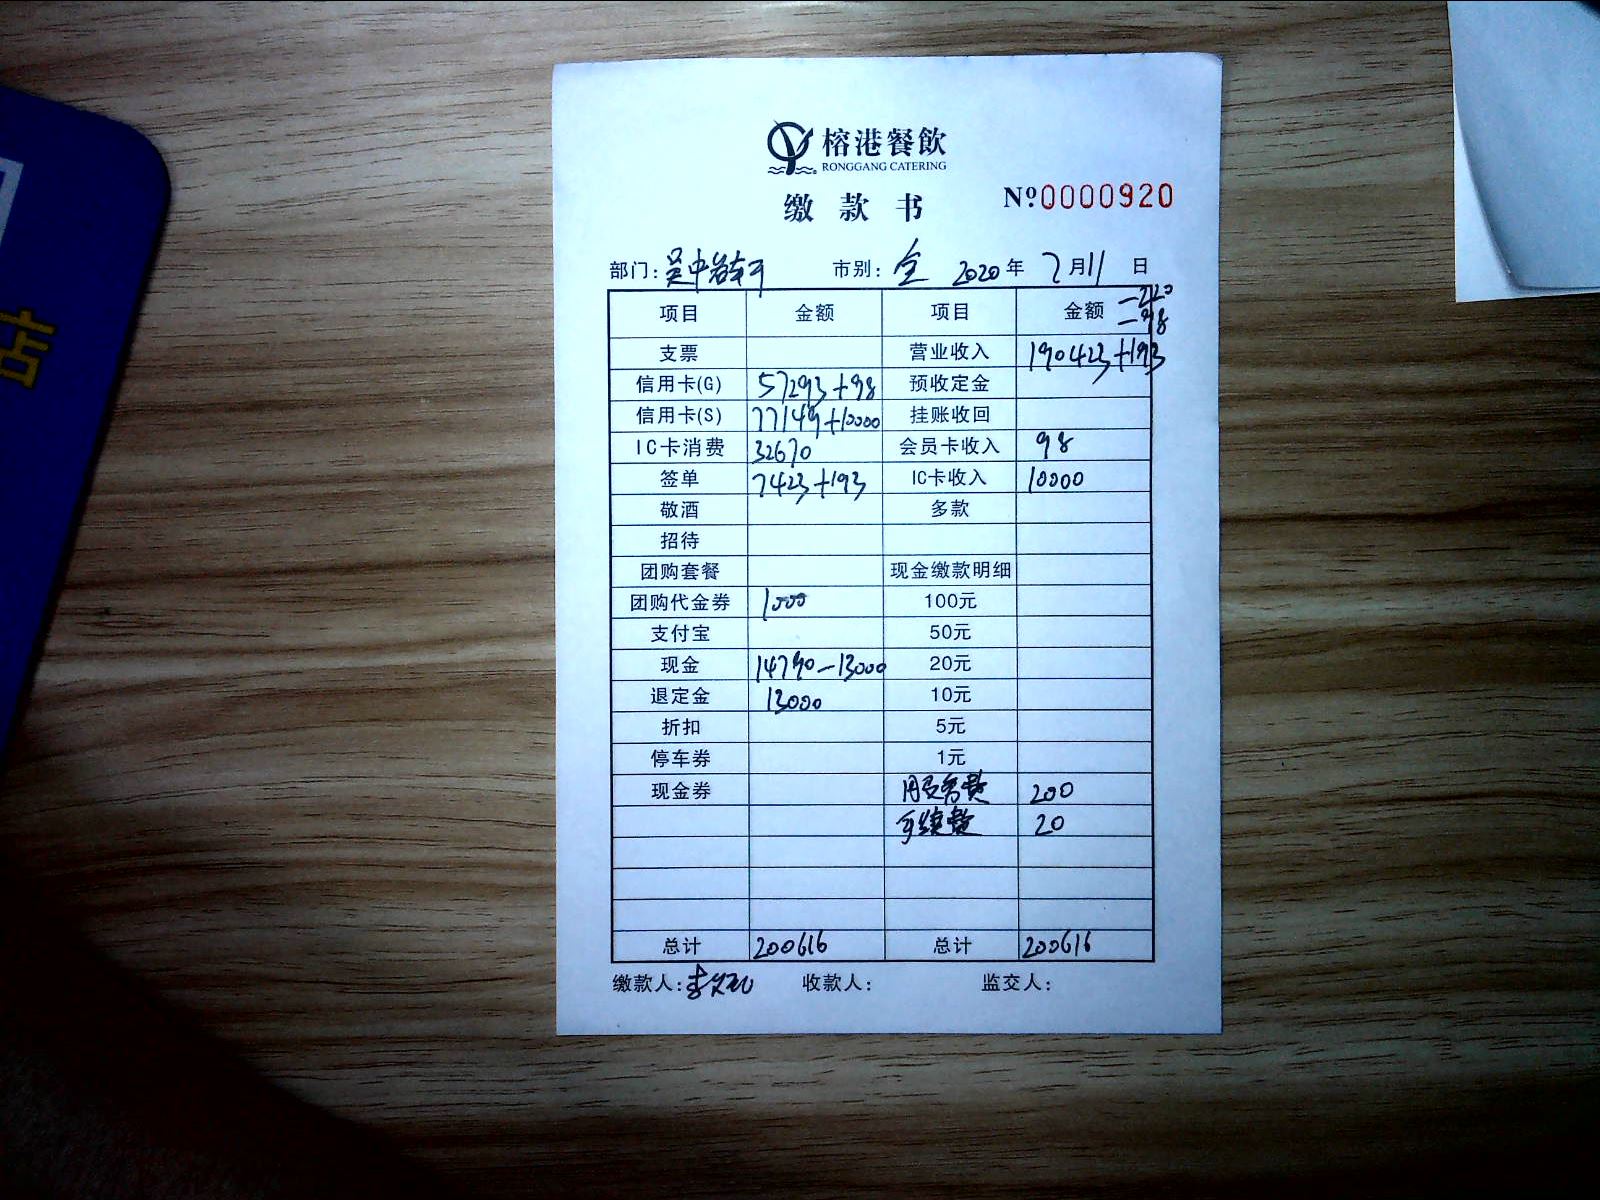 榕港餐飲
RONGGANG CATERING
缴款书 Nº0000920
部门: 吴中 市别: 全 2020年 7月11日
项目 金额 项目 金额 -220
-98
支票 营业收入 190423+193
信用卡(G) 57293+98 预收定金
信用卡(S) 77149+10000 挂账收回
IC卡消费 32670 会员卡收入 98
签单 7423+193 IC卡收入 10000
敬酒 多款
招待
团购套餐 现金缴款明细
团购代金券 1000 100元
支付宝 50元
现金 14790-13000 20元
退定金 13000 10元
折扣 5元
停车券 1元
现金券 服务费 200
手续费 20
总计 200616 总计 200616
缴款人: 李 收款人: 监交人:
店